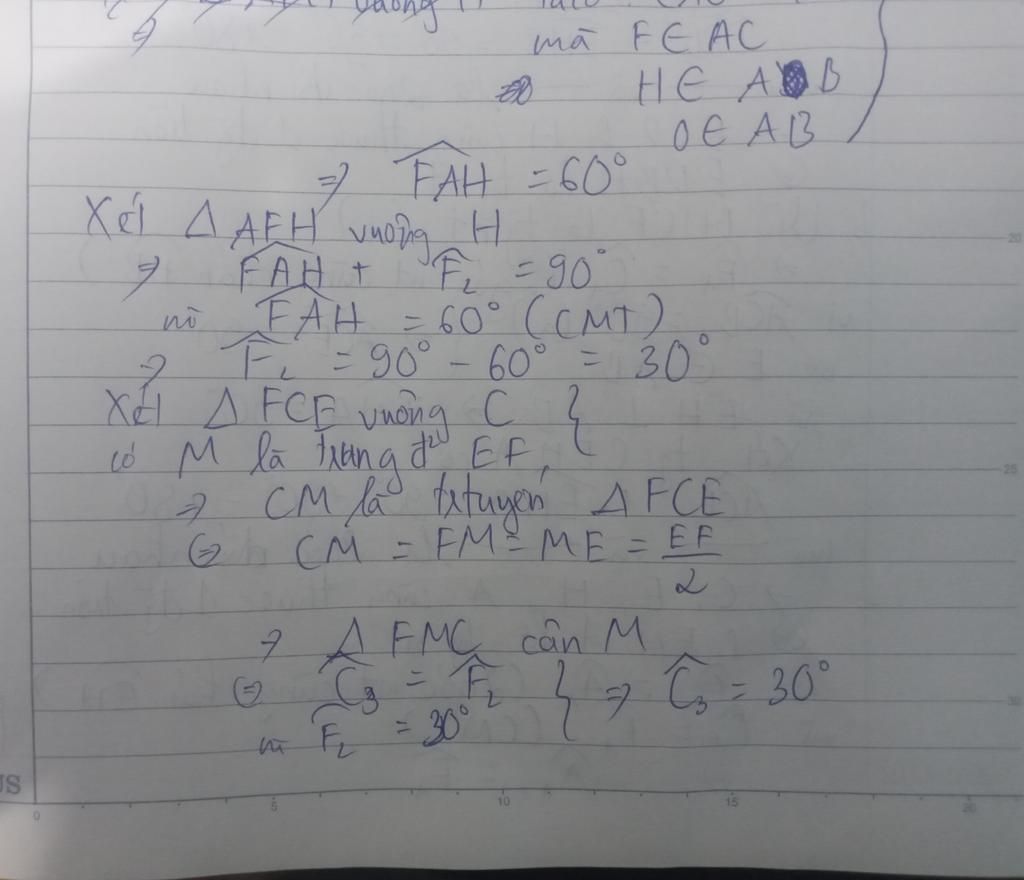 vuông
mà F ∈ AC
H ∈ A B
O ∈ AB
⇒ FAH = 60°
Xét Δ AFH vuông H
⇒ FAH + F₂ = 90°
mà FAH = 60° (CMT)
⇒ F₂ = 90° - 60° = 30°
Xét Δ FCE vuông C }
có M là trung đ² EF,
⇒ CM là trtuyến Δ FCE
⇔ CM = FM = ME = EF/2
⇒ Δ FMC cân M
⇔ C₃ = F₂ } ⇒ C₃ = 30°
mà F₂ = 30°
US
0 5 10 15 20
20
25
30